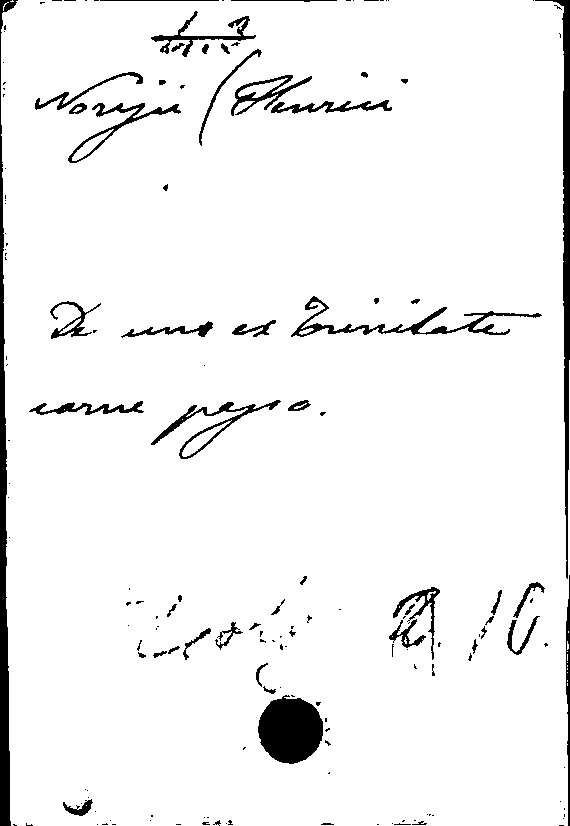 Norisii (Henrici
De uno ex Trinitate
carne passo.
10.